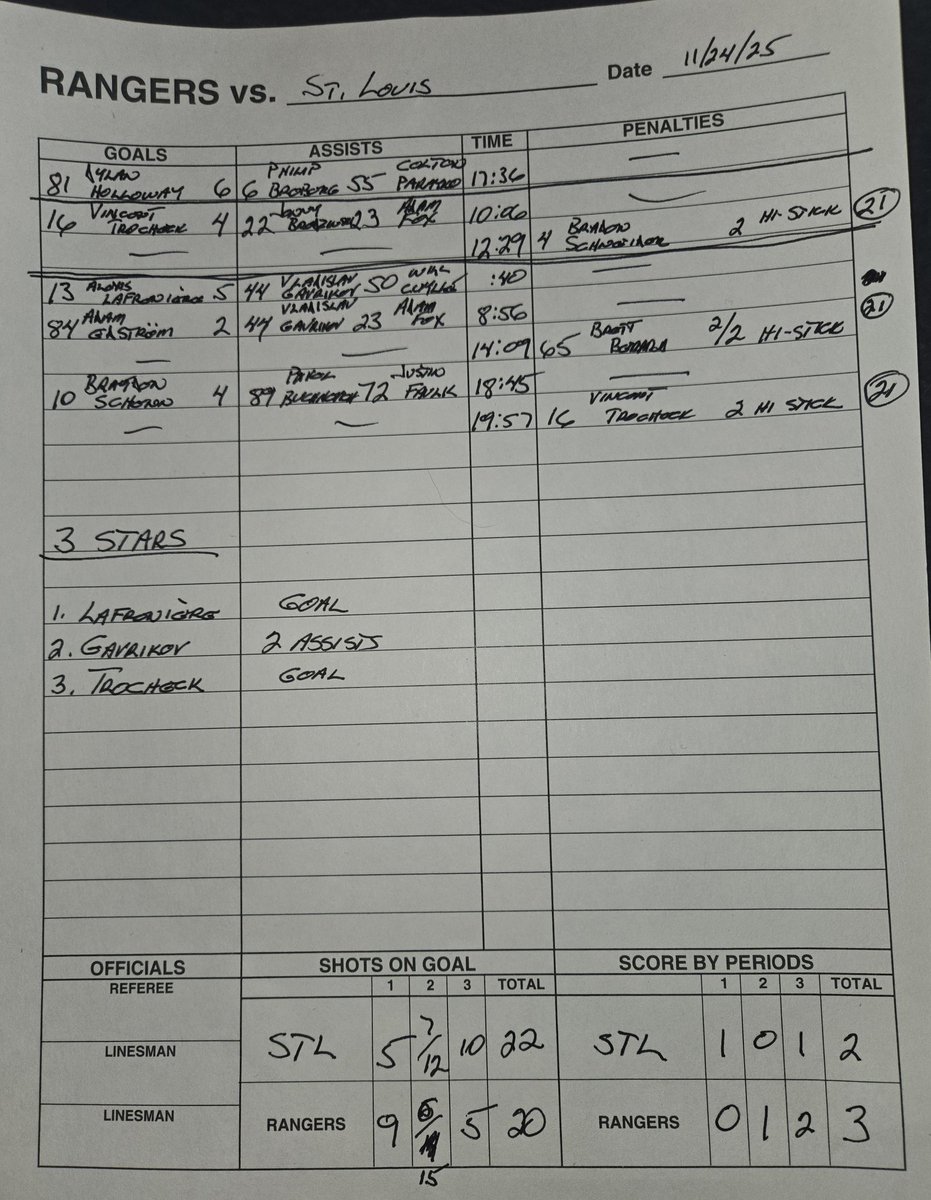 RANGERS vs. ST. LOUIS Date 11/24/25
GOALS ASSISTS TIME PENALTIES
81 DYLAN HOLLOWAY 6 6 PHILIP BROBERG 55 COLTON PARAYKO 17:36 —
16 VINCENT TROCHECK 4 22 JONNY BRODZINSKI 23 ADAM FOX 10:06 —
— 12:29 4 BRADEN SCHNEIDER 2 HI-STICK 21
13 ALEXIS LAFRENIÈRE 5 44 VLADISLAV GAVRIKOV 50 WILL CUYLLE :40 —
84 ADAM EDSTRÖM 2 44 VLADISLAV GAVRIKOV 23 ADAM FOX 8:56 — 21
— — 14:09 65 BRETT BERARD 2/2 HI-STICK
10 BRAYDEN SCHENN 4 89 PAVEL BUCHNEVICH 72 JUSTIN FAULK 18:45 —
— — 19:57 16 VINCENT TROCHECK 2 HI STICK 21
3 STARS
1. LAFRENIÈRE GOAL
2. GAVRIKOV 2 ASSISTS
3. TROCHECK GOAL
OFFICIALS SHOTS ON GOAL SCORE BY PERIODS
REFEREE 1 2 3 TOTAL 1 2 3 TOTAL
STL 5 7/12 10 22 STL 1 0 1 2
LINESMAN
LINESMAN RANGERS 9 6/15 5 20 RANGERS 0 1 2 3